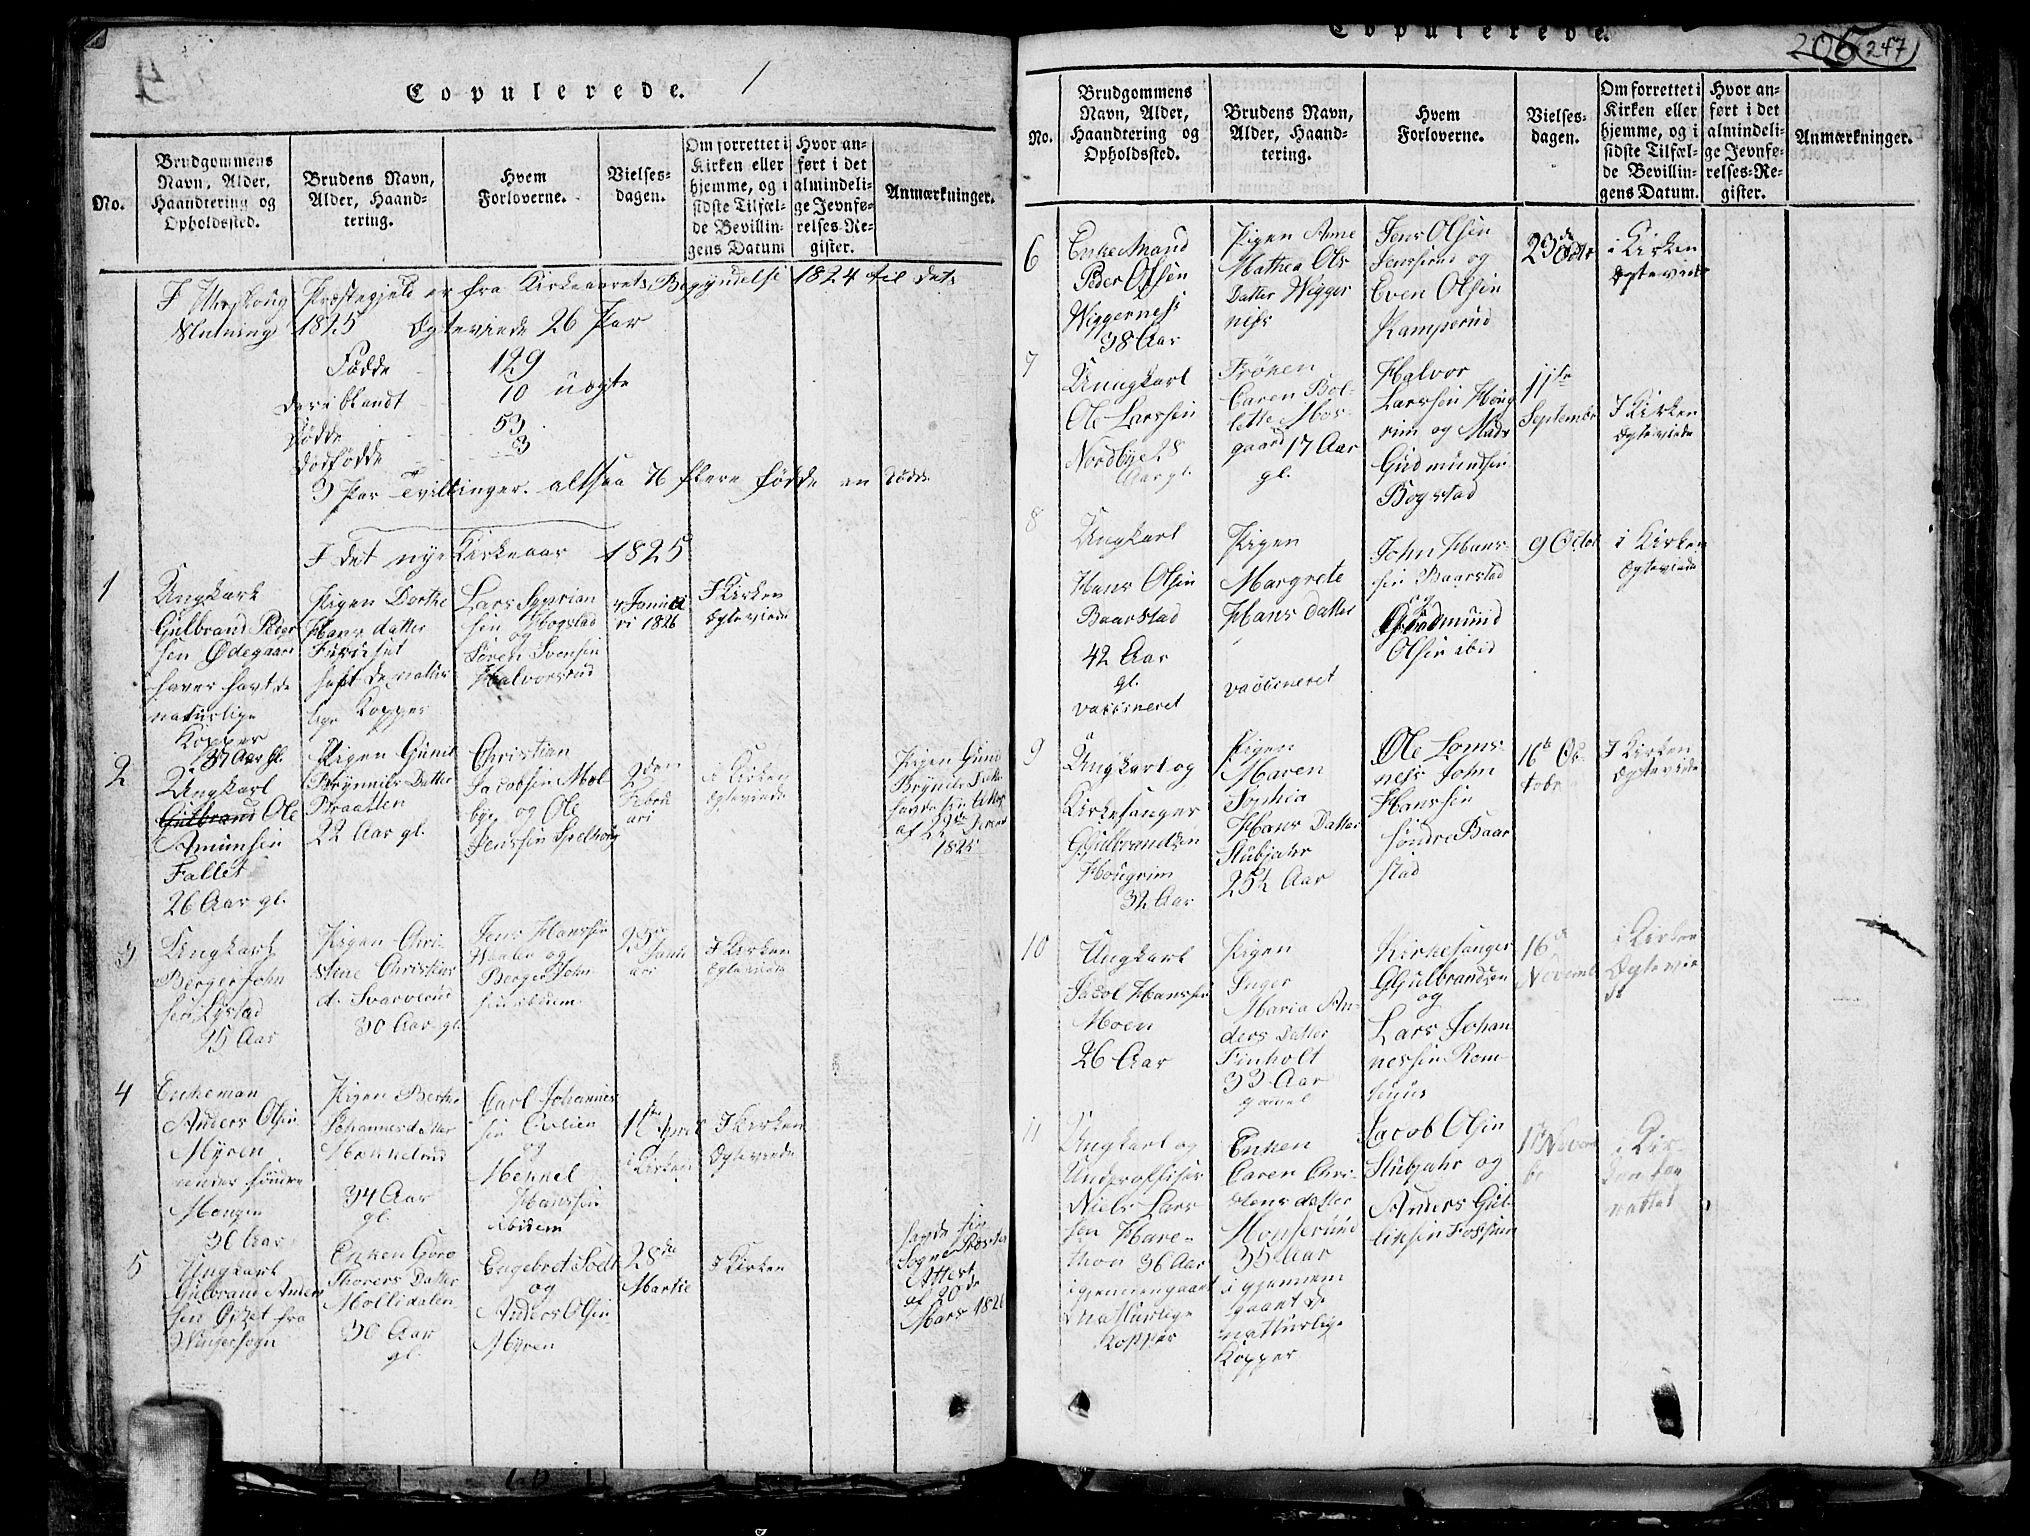 Copulerede. 1
No.
Brudgommens Navn, Alder, Haandtering og Opholdssted.
Brudens Navn, Alder, Haandtering.
Hvem Forloverne.
Vielsesdagen.
Om forrettet i Kirken eller hjemme, og i sidste Tilfælde Bevillingens Datum
Hvor anført i det almindelige Jevnførelses-Register.
Anmærkninger.
Præstegjeld er fra Kirkeaarets Begyndelse 1824 til dets
Slutning 1825 Ægteviede 26 Par
Fødde 129
deriblandt 10 uægte
Dødde 53
Dødfødde 3
3 Par Tvillinger. altsaa 76 flere fødde en Dødde
I det nye Kirkeaar 1825
1
Ungkarl
Gulbrand Peder
sen Ødegaard
haver havt de
naturlige
Kopper
37 Aar gl.
Pigen Dorthe
Hans datter
Furuset
haft de natur
lige Kopper
Lars
sen Hogstad
og
Søren Svensen
Halvorsrud
4 Janua
ri 1826
I Kirken
Ægteviede
2
Ungkarl
Gulbrand Ole
Amunsen
Fallet
26 Aar gl.
Pigen Gunil
Brynnils Datter
Braatten
22 Aar gl.
Christian
Jacobsen Mel
bye og Ole
Jenssen
2den
Febru
ari
i Kirken
Ægteviede
Pigen Gunil
Brynils Datter
af 29de
1825
3
Ungkarl
Berger John
sen Lystad
25 Aar
Pigen Chri-
stine Christians
d. Svarverud
30 Aar gl.
Jens Hanssen
Haalen og
Berger John
sen ibidem
23de
Janu
ari
I Kirken
Ægteviede
4
Enkeman
Anders Olsen
Myren
under søndre
Monzen
36 Aar
Pigen Berthe
Johannes datter
Møkkelrud
34 Aar
gl.
Carl Johannes
sen Evelien
og
Mekkel
Hanssen
ibidem
1ste April
i Kirken
I Kirken
Ægteviede
5
Ungkarl
Gulbrand Anders
sen fra
Wingersogn
Enken Goro
Thorers Datter
Mollidalen
30 Aar
gl.
Engebret
og
Anders Olsen
Myren
28de
Martie
I Kirken
havde sin
Sogne Præstes
Attest
af 20de
Mars 1826
Copulerede.
205 247
No.
Brudgommens Navn, Alder, Haandtering og Opholdssted.
Brudens Navn, Alder, Haandtering.
Hvem Forloverne.
Vielsesdagen.
Om forrettet i Kirken eller hjemme, og i sidste Tilfælde Bevillingens Datum.
Hvor anført i det almindelige Jevnførelses-Register.
Anmærkninger.
6
Enke Mand
Peder Olsen
Wiggerness
38 Aar
Pigen Anne
Mathea Ols
Datter Wigger
ness
Jens Olsen
Jensrud og
Even Olsen
Kamperud
23de
i Kirken
Ægteviede
7
Ungkarl
Ole Larssen
Nordbye 28
Aar gl.
Frøken
Caren Bol-
lette Mos-
gaard 17 Aar
gl.
Halvor
Larssen Houg
rim og Mads
Gudmundsen
Bogstad
11te
September
I Kirken
Ægteviede
8
Ungkarl
Hans Olsen
Baarstad
42 Aar
gl.
vaccineret
Pigen
Margrete
Hans Datter
vaccineret
John Hans-
sen Baarstad
og
Gudmund
Olsen ibid
9 Octob
i Kirken
Ægteviede
9
Ungkarl og
Kirkesanger
Gulbrandsen
Hougrim
32 Aar
Pigen
Maren
Sophia
Hans Datter
Stubjahr
25½ Aar
Ole Loms-
ness John
Hanssen
søndre Baar
stad
16de Oc-
tobr
I Kirken
Ægteviede
10
Ungkarl
Jacob Hanssen
Moen
26 Aar
Pigen
Inger
Maria An
ders Datter
Finholt
33 Aar
gammel
Kirkesanger
Gulbrandsen
og
Lars Johan
nessen Rom
16de
Novemb
i Kirken
Ægtevie
de
11
Ungkarl og
Underofficer
Niels Lars
sen Hare-
thon 36 Aar
igjennemgaaet
naturlige
Kopper
Enken
Caren Chri-
stens datter
Mosserud
35 Aar
igjennem
gaaet de
naturlige
Kopper
Jacob Olsen
Stubjahr og
Anders Gul
liksen Fossum
1 Novem
be
i Kir-
ken